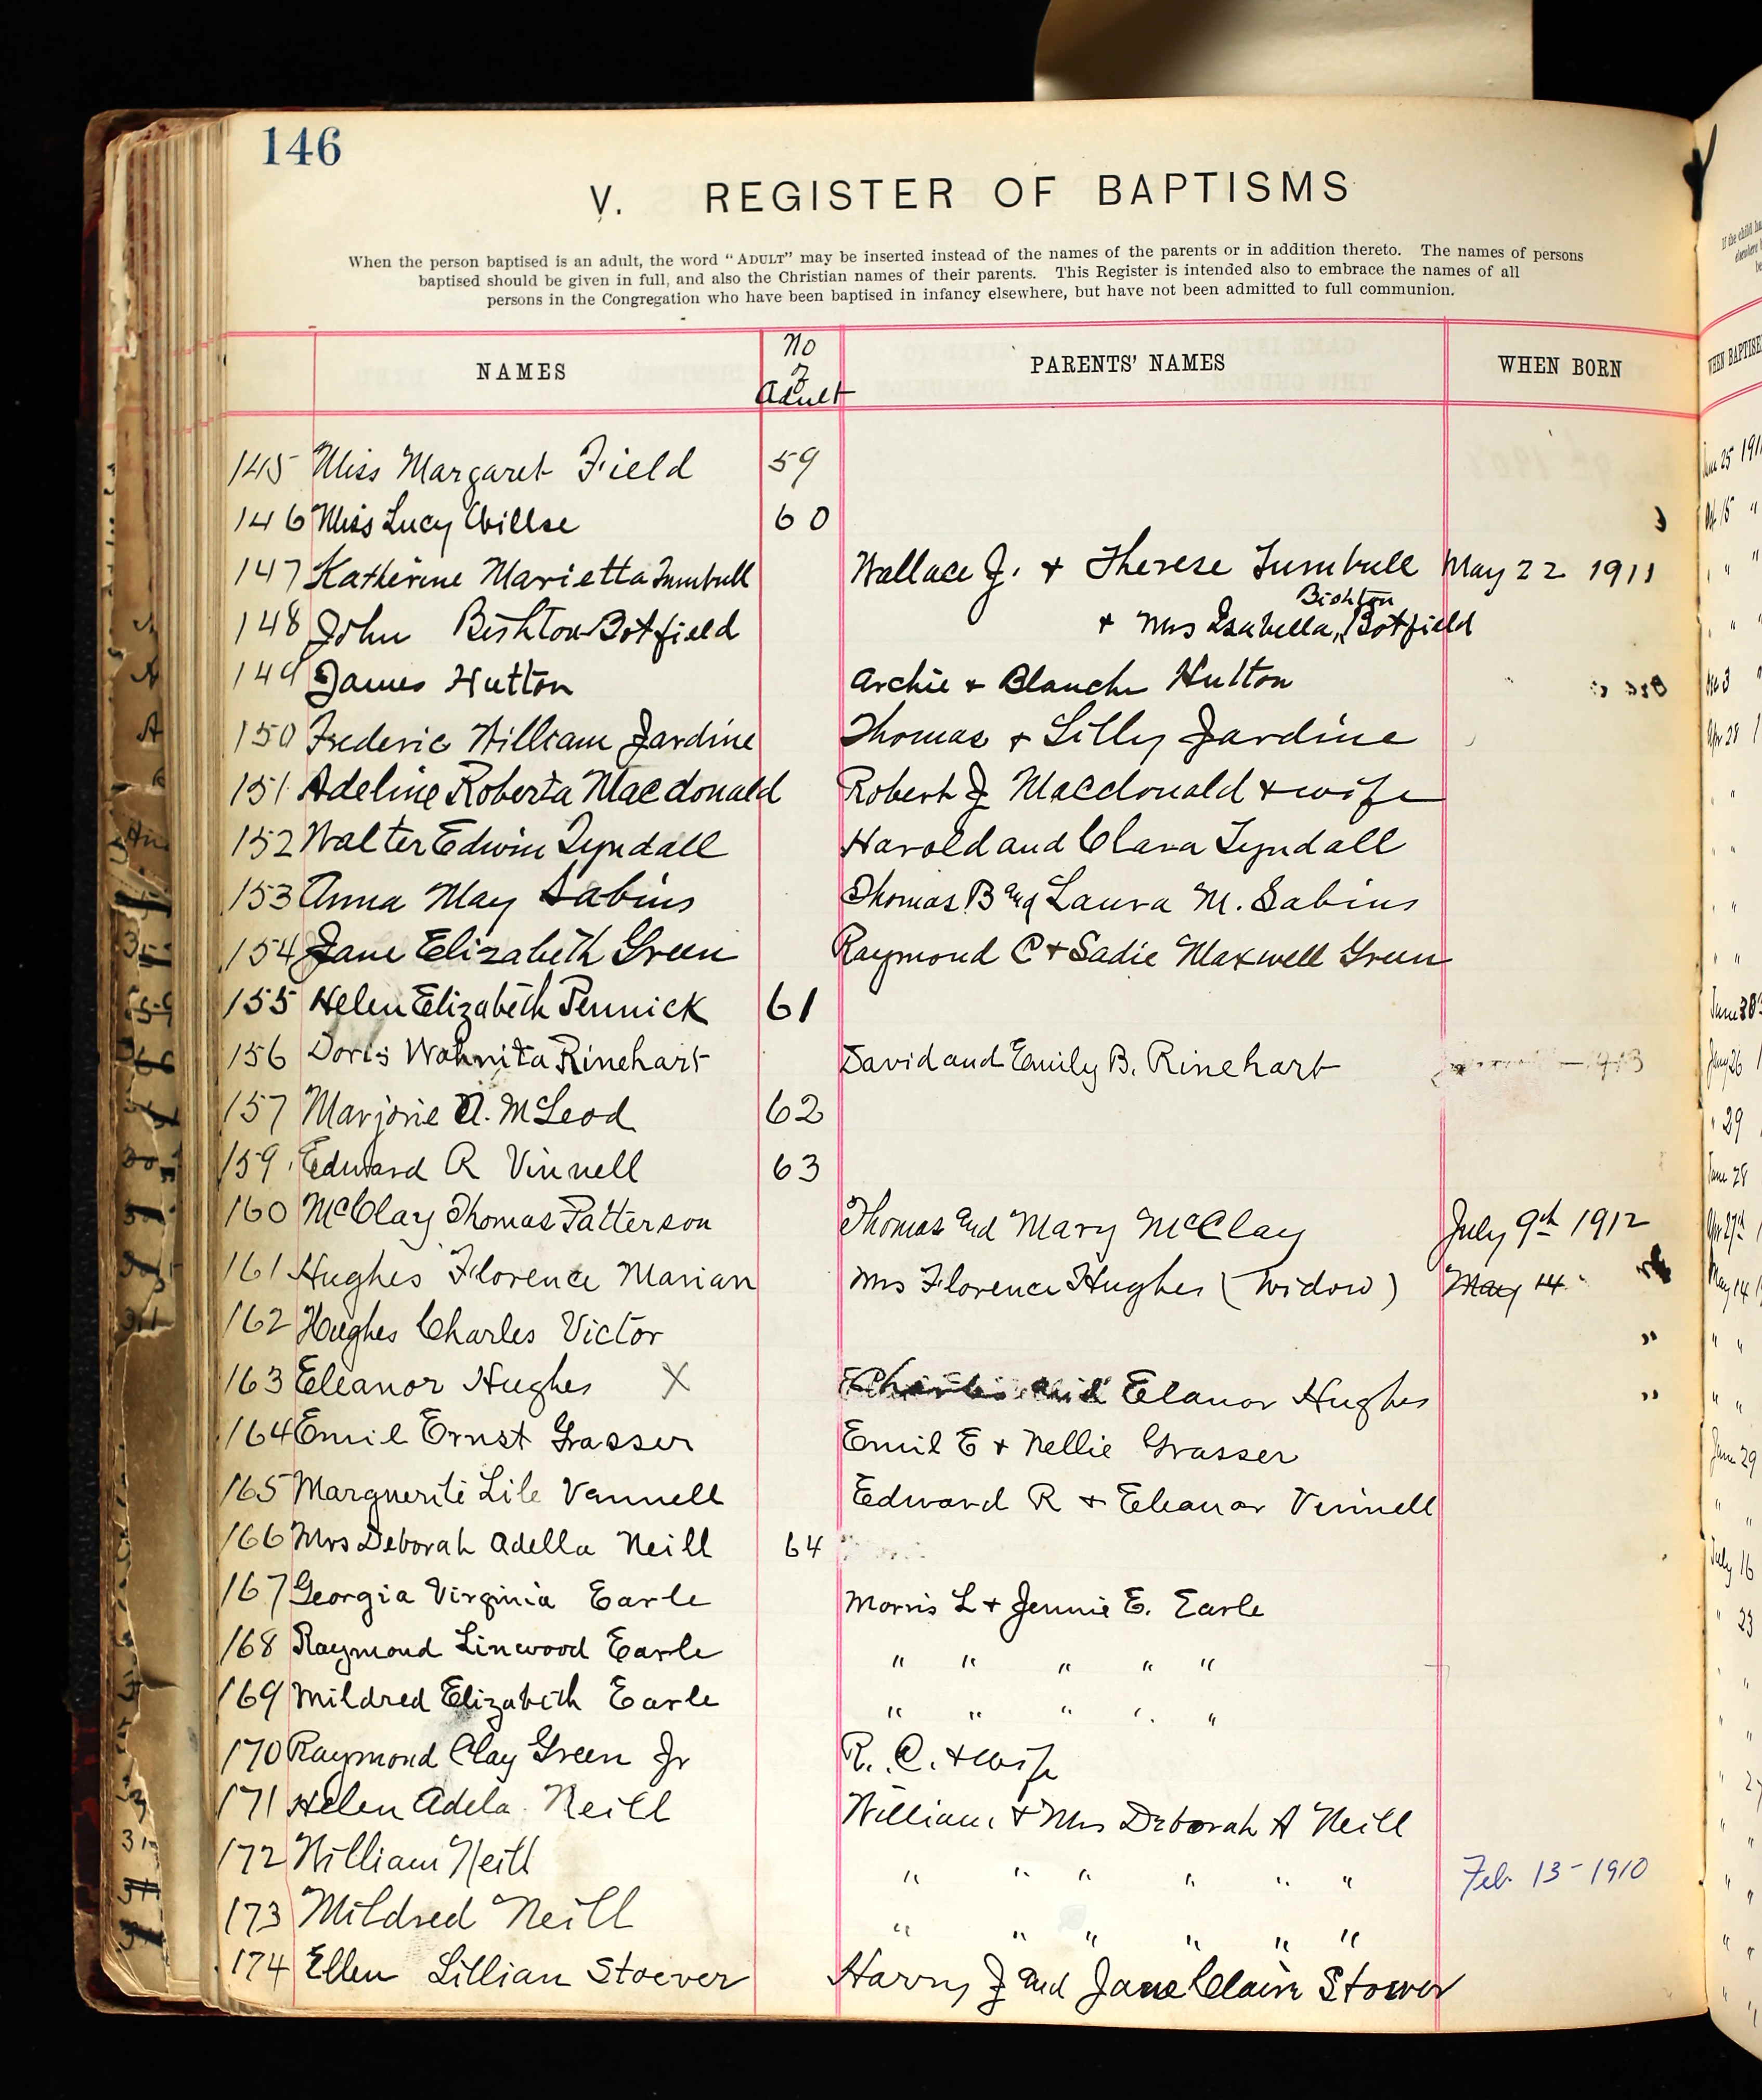 146
V. REGISTER OF BAPTISMS
When the person baptised is an adult, the word "ADULT" may be inserted instead of the names of the parents or in addition thereto. The names of persons
baptised should be given in full, and also the Christian names of their parents. This Register is intended also to embrace the names of all
persons in the Congregation who have been baptised in infancy elsewhere, but have not been admitted to full communion.
NAMES No Adult PARENTS' NAMES WHEN BORN
145 Miss Margaret Field 59
146 Miss Lucy Willse 60
147 Katherine Marietta Turnbull Wallace J. + Therese Turnbull May 22 1911
148 John Bishton Botfield + Mrs Isabella Bishton Botfield
149 James Hutton Archie + Blanche Hutton
150 Frederic William Jardine Thomas + Lilly Jardine
151 Adeline Roberta Macdonald Robert J Macdonald + wife
152 Walter Edwin Tyndall Harold and Clara Tyndall
153 Anna May Sabins Thomas B and Laura M. Sabins
154 Jane Elizabeth Green Raymond C + Sadie Maxwell Green
155 Helen Elizabeth Pennick 61
156 Doris Wahnita Rinehart David and Emily B. Rinehart
157 Marjorie A. McLeod 62
159 Edward R Vinnell 63
160 McClay Thomas Patterson Thomas and Mary McClay July 9th 1912
161 Hughes Florence Marian Mrs Florence Hughes (Widow) May 14
162 Hughes Charles Victor "
163 Eleanor Hughes X Charles and Elanor Hughes "
164 Emil Ernst Grasser Emil E + Nellie Grasser
165 Marguerite Lile Vannell Edward R + Eleanor Vinnell
166 Mrs Deborah Adella Neill 64
167 Georgia Virginia Earle Morris L + Jennie E. Earle
168 Raymond Linwood Earle " " " " "
169 Mildred Elizabeth Earle " " " " "
170 Raymond Clay Green Jr R. C. + wife
171 Helen Adela Neill William + Mrs Deborah A Neill
172 William Neill " " " " " " Feb. 13 - 1910
173 Mildred Neill " " " " " "
174 Ellen Lillian Stoever Harry J and Jane Claire Stover